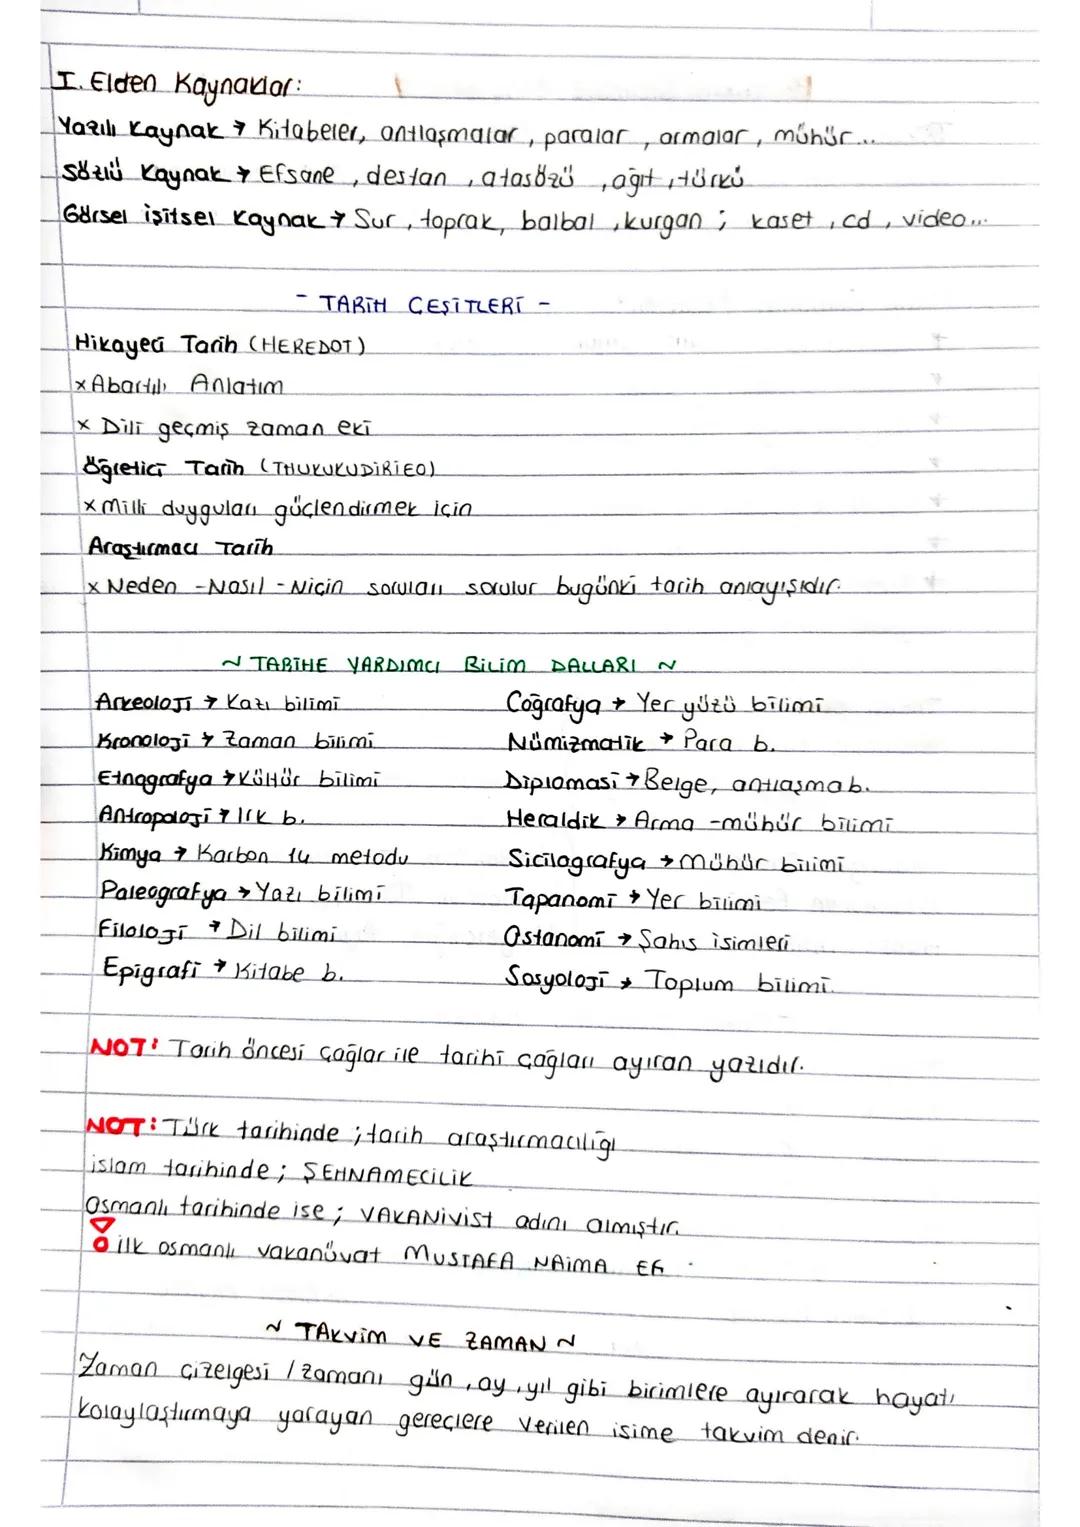 I. Elden Kaynaklar:
Yazılı Kaynak → Kitabeler, antlaşmalar, paralar, armalar, mühür...
Sözlü Kaynak → Efsane, destan, atasözü, ağıt, türkü
Görsel işitsel Kaynak → Sur, toprak, balbal, kurgan; kaset, cd, video...
- TARİH ÇEŞİTLERİ -
Hikayeci Tarih (HEREDOT)
x Abartılı Anlatım
x Dili geçmiş zaman eki
Öğretici Tarih (THUKUKUDİRİEO)
x Milli duyguları güçlendirmek için
Araştırmacı Tarih
x Neden - Nasıl - Niçin soruları sorulur bugünki tarih anlayışıdır.
~ TARİHE YARDIMCI BİLİM DALLARI ~
Arkeoloji → Kazı bilimi
Kronoloji → Zaman bilimi
Etnografya → Kültür bilimi
Antropoloji → Irk b.
Kimya → Karbon 14 metodu
Paleografya → Yazı bilimi
Filoloji → Dil bilimi
Epigrafi → Kitabe b.
Coğrafya → Yer yüzü bilimi
Nümizmatik → Para b.
Diplomasi → Belge, antlaşma b.
Heraldik → Arma - mühür bilimi
Sicilografya → Mühür bilimi
Tapanomi → Yer bilimi
Ostanomi → Şahıs isimleri
Sosyoloji → Toplum bilimi.
NOT: Tarih öncesi çağlar ile tarihi çağları ayıran yazıdır.
NOT: Türk tarihinde ; tarih araştırmacılığı
islam tarihinde ; ŞEHNAMECİLİK
Osmanlı tarihinde ise ; VAKANİVİST adını almıştır.
ilk osmanlı vakanüvat MUSTAFA NAİMA EF.
~ TAKVİM VE ZAMAN ~
Zaman çizelgesi / zamanı gün, ay, yıl gibi birimlere ayırarak hayatı
kolaylaştırmaya yarayan gereçlere verilen isime takvim denir.